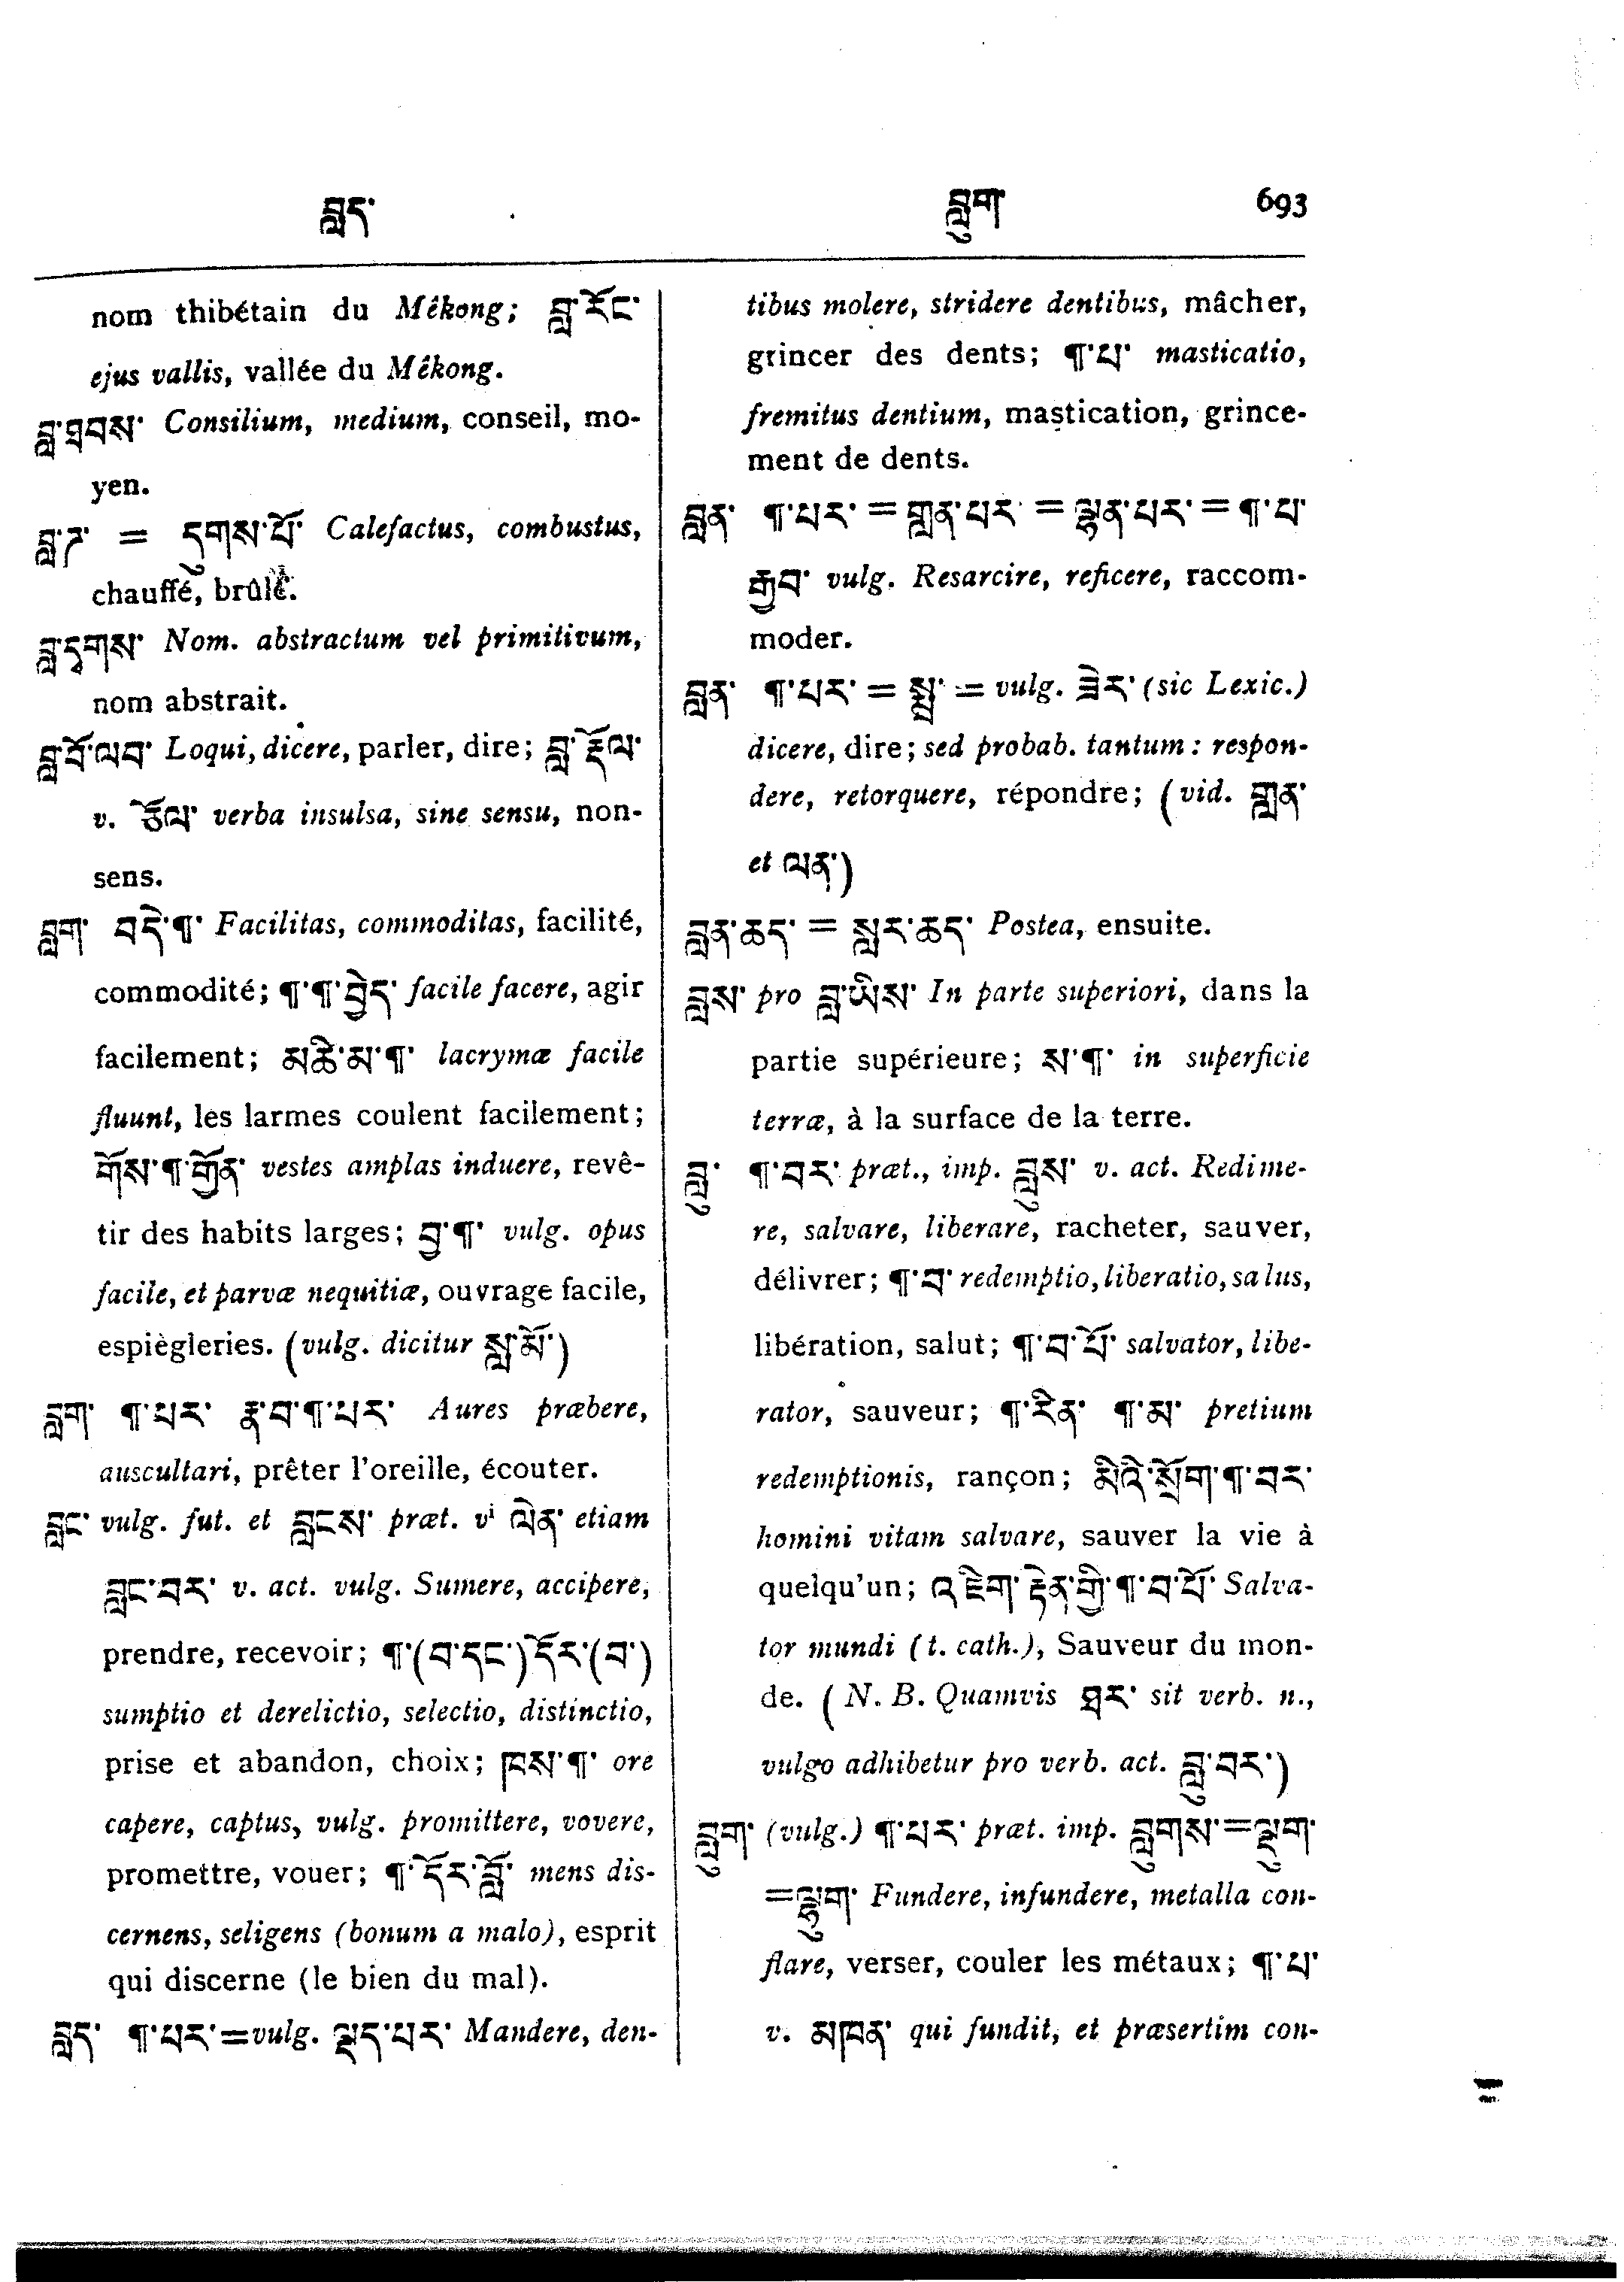 བླད་
བླུག་ 693
nom thibétain du Mêkong; བླ་རོང་
ejus vallis, vallée du Mêkong.
བླ་ཐབས་ Consilium, medium, conseil, mo-
yen.
བླ་ཊ་ = དུགས་པོ་ Calefactus, combustus,
chauffé, brûlé.
བླ་དྭགས་ Nom. abstractum vel primitivum,
nom abstrait.
བླ་བོ་ལབ་ Loqui, dicere, parler, dire; བླ་རྡོལ་
v. ཅོལ་ verba insulsa, sine sensu, non-
sens.
བླག་ བདེ་¶་ Facilitas, commoditas, facilité,
commodité; ¶་¶་བྱེད་ facile facere, agir
facilement; མཆི་མ་¶་ lacrymæ facile
fluunt, les larmes coulent facilement;
གོས་¶་གྱོན་ vestes amplas induere, revê-
tir des habits larges; བྱ་¶་ vulg. opus
facile, et parvæ nequitiæ, ouvrage facile,
espiègleries. (vulg. dicitur སླ་མོ་)
བླག་ ¶་པར་ རྣ་བ་¶་པར་ Aures præbere,
auscultari, prêter l'oreille, écouter.
བླང་ vulg. fut. et བླངས་ præt. vⁱ ལེན་ etiam
བླང་བར་ v. act. vulg. Sumere, accipere,
prendre, recevoir; ¶་(བ་དང་)དོར་(བ་)
sumptio et derelictio, selectio, distinctio,
prise et abandon, choix; ཁས་¶་ ore
capere, captus, vulg. promittere, vovere,
promettre, vouer; ¶་དོར་བློ་ mens dis-
cernens, seligens (bonum a malo), esprit
qui discerne (le bien du mal).
བླད་ ¶་པར་=vulg. ལྡད་པར་ Mandere, den-
tibus molere, stridere dentibus, mâcher,
grincer des dents; ¶་པ་ masticatio,
fremitus dentium, mastication, grince-
ment de dents.
བླན་ ¶་པར་ = གླན་པར་ = ལྷན་པར་ = ¶་པ་
རྒྱབ་ vulg. Resarcire, reficere, raccom-
moder.
བླན་ ¶་པར་ = སྨྲ་ = vulg. ཟེར་ (sic Lexic.)
dicere, dire; sed probab. tantum: respon-
dere, retorquere, répondre; (vid. གླན་
et ལན་)
བླན་ཆད་ = སླར་ཆད་ Postea, ensuite.
བླས་ pro བླ་ཡིས་ In parte superiori, dans la
partie supérieure; ས་¶་ in superficie
terræ, à la surface de la terre.
བླུ་ ¶་བར་ præt., imp. བླུས་ v. act. Redime-
re, salvare, liberare, racheter, sauver,
délivrer; ¶་བ་ redemptio, liberatio, salus,
libération, salut; ¶་བ་པོ་ salvator, libe-
rator, sauveur; ¶་རིན་ ¶་མ་ pretium
redemptionis, rançon; མིའི་སྲོག་¶་བར་
homini vitam salvare, sauver la vie à
quelqu'un; འཇིག་རྟེན་གྱི་¶་བ་པོ་ Salva-
tor mundi (t. cath.), Sauveur du mon-
de. (N. B. Quamvis ཐར་ sit verb. n.,
vulgo adhibetur pro verb. act. བླུ་བར་)
བླུག་ (vulg.) ¶་པར་ præt. imp. བླུགས་=ལྡུག་
=ལྷུག་ Fundere, infundere, metalla con-
flare, verser, couler les métaux; ¶་པ་
v. མཁན་ qui fundit, et præsertim con-